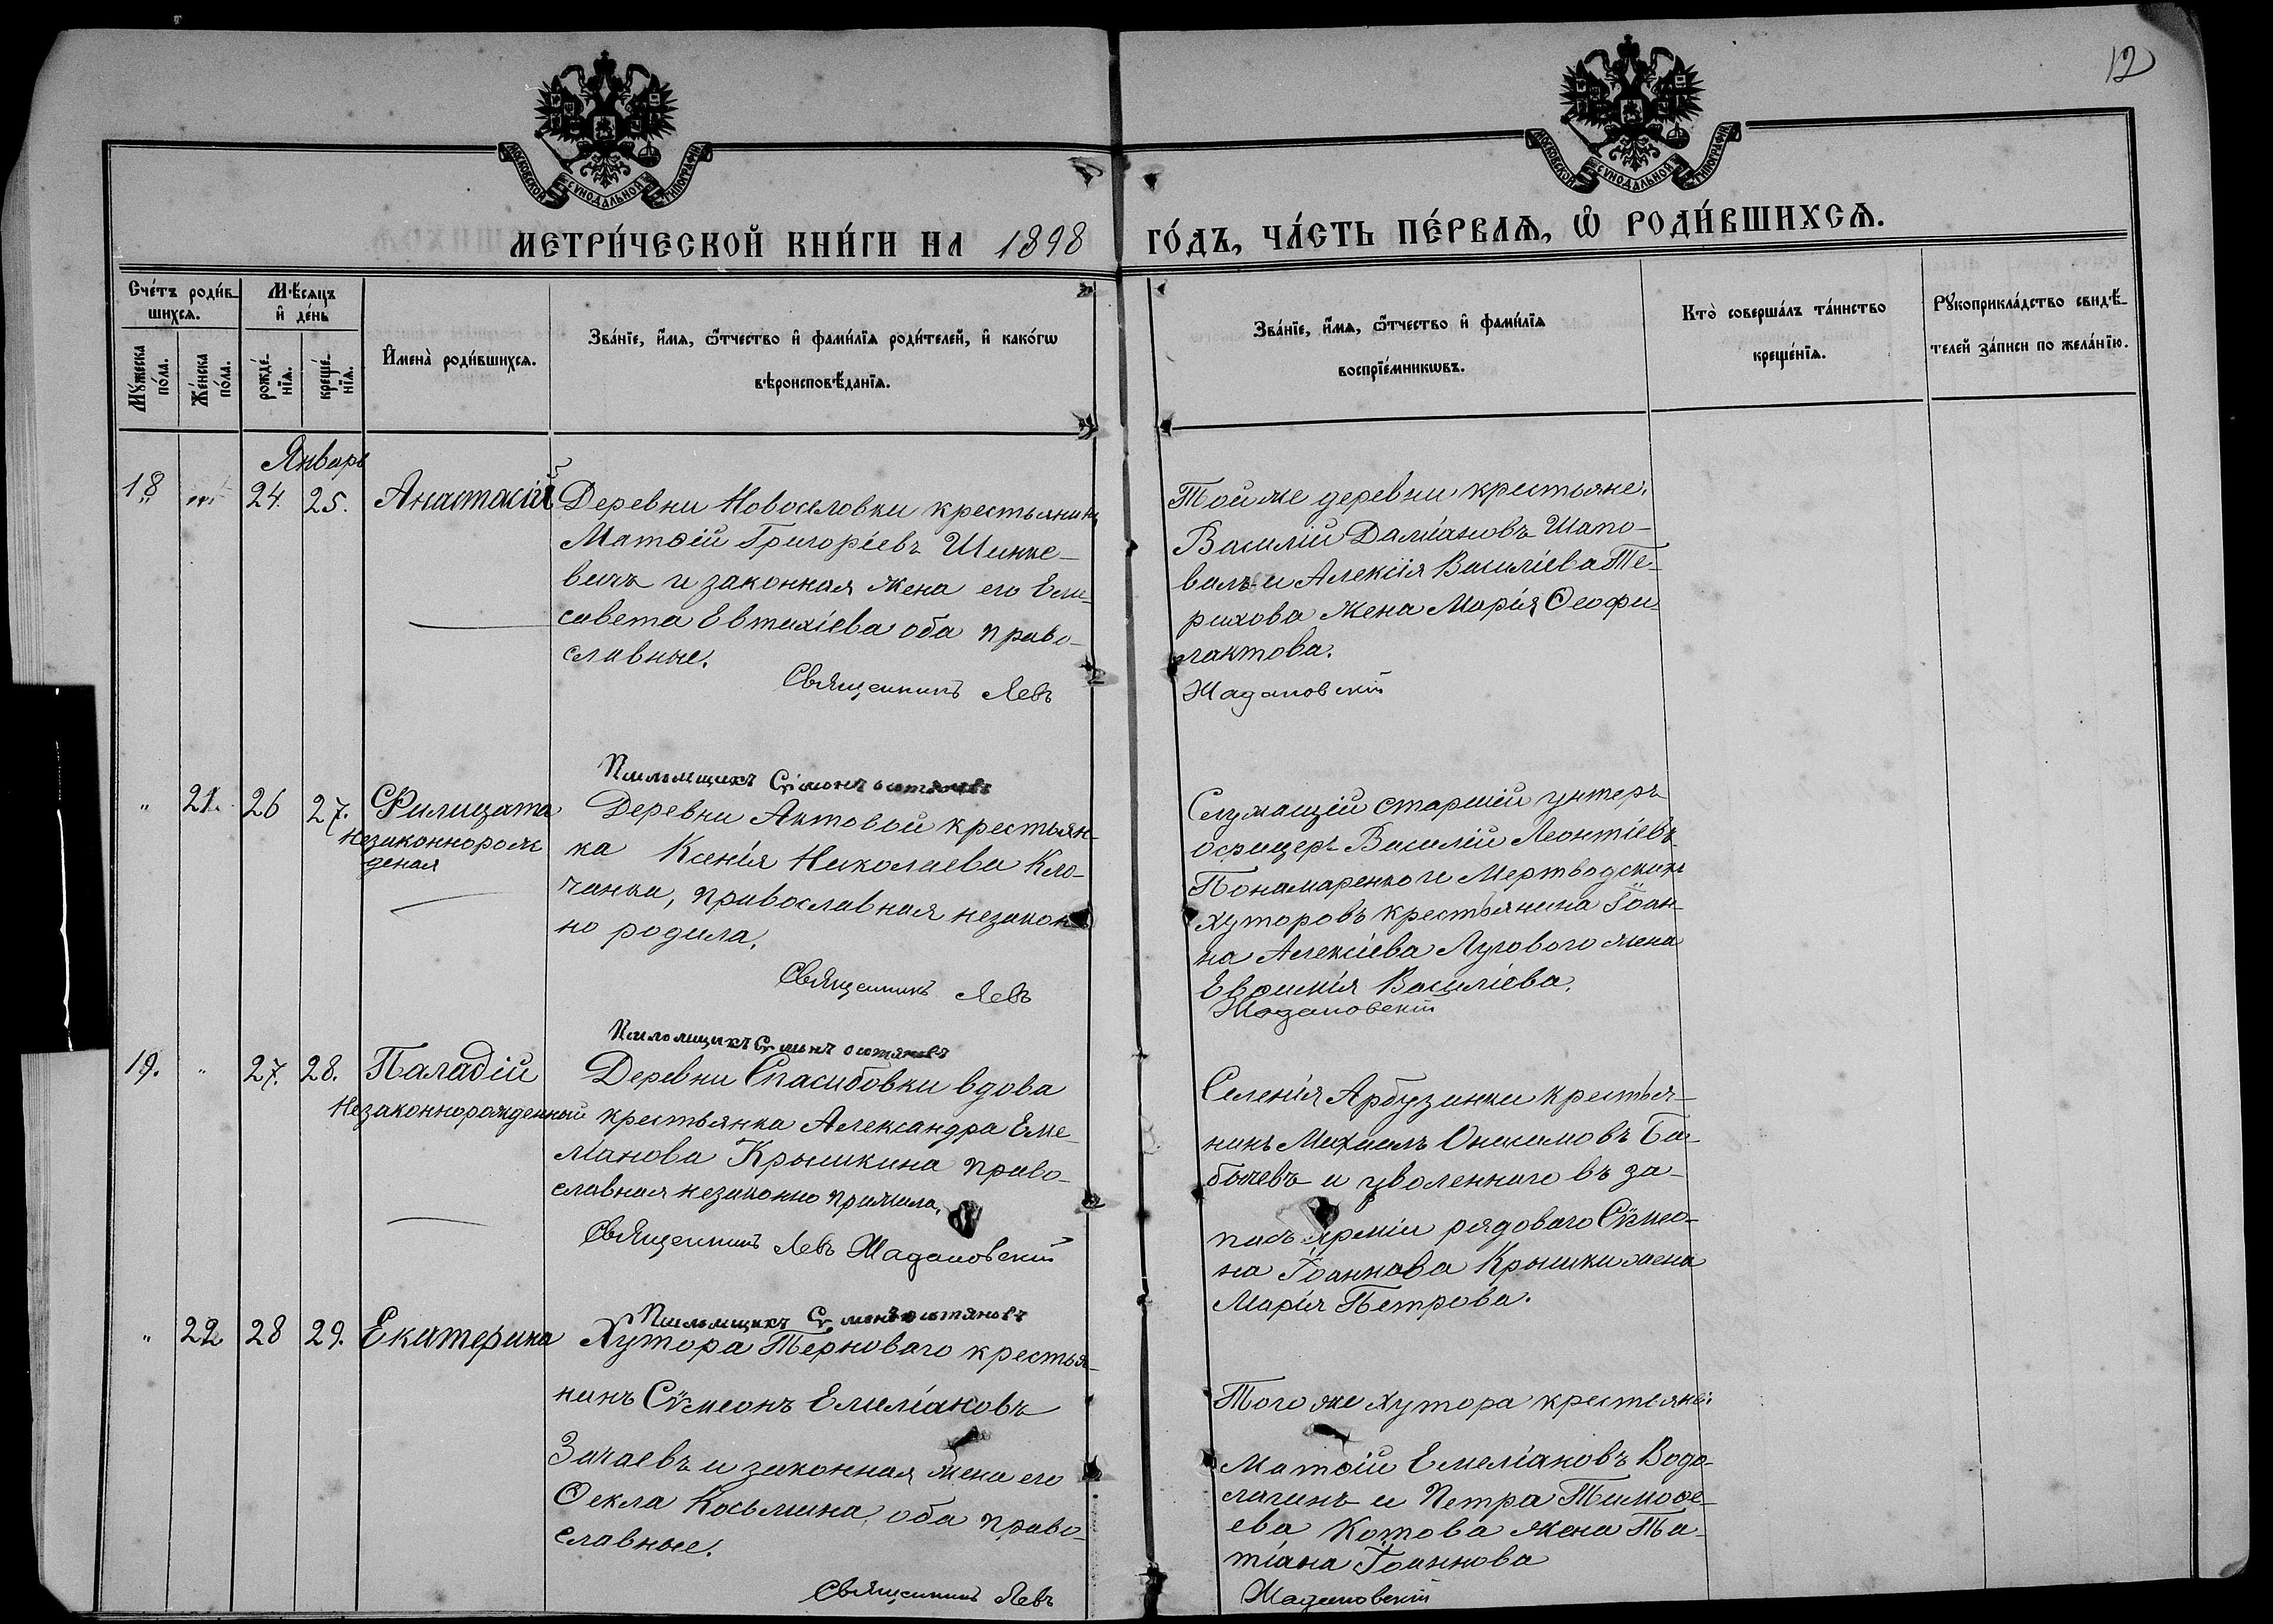 12
МОСКОВСКОЙ СѴНОДАЛЬНОЙ ТИПОГРАФІИ
МОСКОВСКОЙ СѴНОДАЛЬНОЙ ТИПОГРАФІИ
МЕТРИ́ЧЕСКОЙ КНИ́ГИ НА 1898 ГО́ДЪ, ЧА́СТЬ ПЕ́РВАѦ, Ѡ РОДИ́ВШИХСѦ.
Сче́тъ роди́в-
шихсѧ.
Мꙋ́жеска
по́ла.
Же́нска
по́ла.
Мѣ́сѧцъ
и де́нь
рожде́-
нїѧ.
креще́-
нїѧ.
Имена̀ роди́вшихсѧ.
Зва́нїе, и́мѧ, ѻ́тчество и фами́лїѧ роди́телей, и како́гѡ
вѣроисповѣ́данїѧ.
Зва́нїе, и́мѧ, ѻ́тчество и фами́лїѧ
воспрїе́мникѡвъ.
Кто̀ соверша́лъ та́инство
креще́нїѧ.
Рꙋкоприкла́дство свидѣ́-
телей за́писи по жела́нїю.
Январь
18 " 24. 25. Анастасій
Деревни Новоселовки крестьянинъ
Матѳій Григоріевъ Шинке-
вичъ и законная жена его Ели-
савета Евтихіева оба право-
славные.
Священникъ Левъ
Той же деревни крестьяне.
Василій Даміановъ Шапо-
валъ и Алексія Василіева Те-
рихова жена Марія Ѳеофи-
лактова.
Жадановскій
Псаломщикъ Сѵмонъ
" 21. 26 27. Филицата
незаконнорож
деная
Деревни Актовой крестьян-
ка Ксенія Николаева Кло-
чанка, православная незакон
но родила.
Священникъ Левъ
Служащій старшій унтеръ
офицеръ Василій Леонтіевъ
Понамаренко и Мертводскихъ
хуторовъ крестьянина Іоан-
на Алексіева Лугового жена
Евфимія Василіева.
Жадановскій
Псаломщикъ
19. " 27. 28. Паладій
Незаконнорожденный
Деревни Спасибовки вдова
крестьянка Александра Еме-
ліанова Крышкина право-
славная незаконно прижила.
Священникъ Левъ Жадановскій
Селенія Арбузинки крестья-
нинъ Михаилъ Онисимовъ Ба-
бичевъ и уволеннаго въ за-
пасъ арміи рядоваго Сѵмео-
на Іоаннова Крышки жена
Марія Петрова.
Псаломщикъ
" 22 28 29. Екатерина
Хутора Терноваго крестья-
нинъ Сѵмеонъ Емиліановъ
Зачаевъ и законная жена его
Ѳекла Косьмина, оба право-
славные.
Священникъ Левъ
Того же хутора крестьяне:
Матѳій Емеліановъ Водо-
лагинъ и Петра Тимоѳе-
ева Котова жена Та-
тіана Іоаннова
Жадановскій